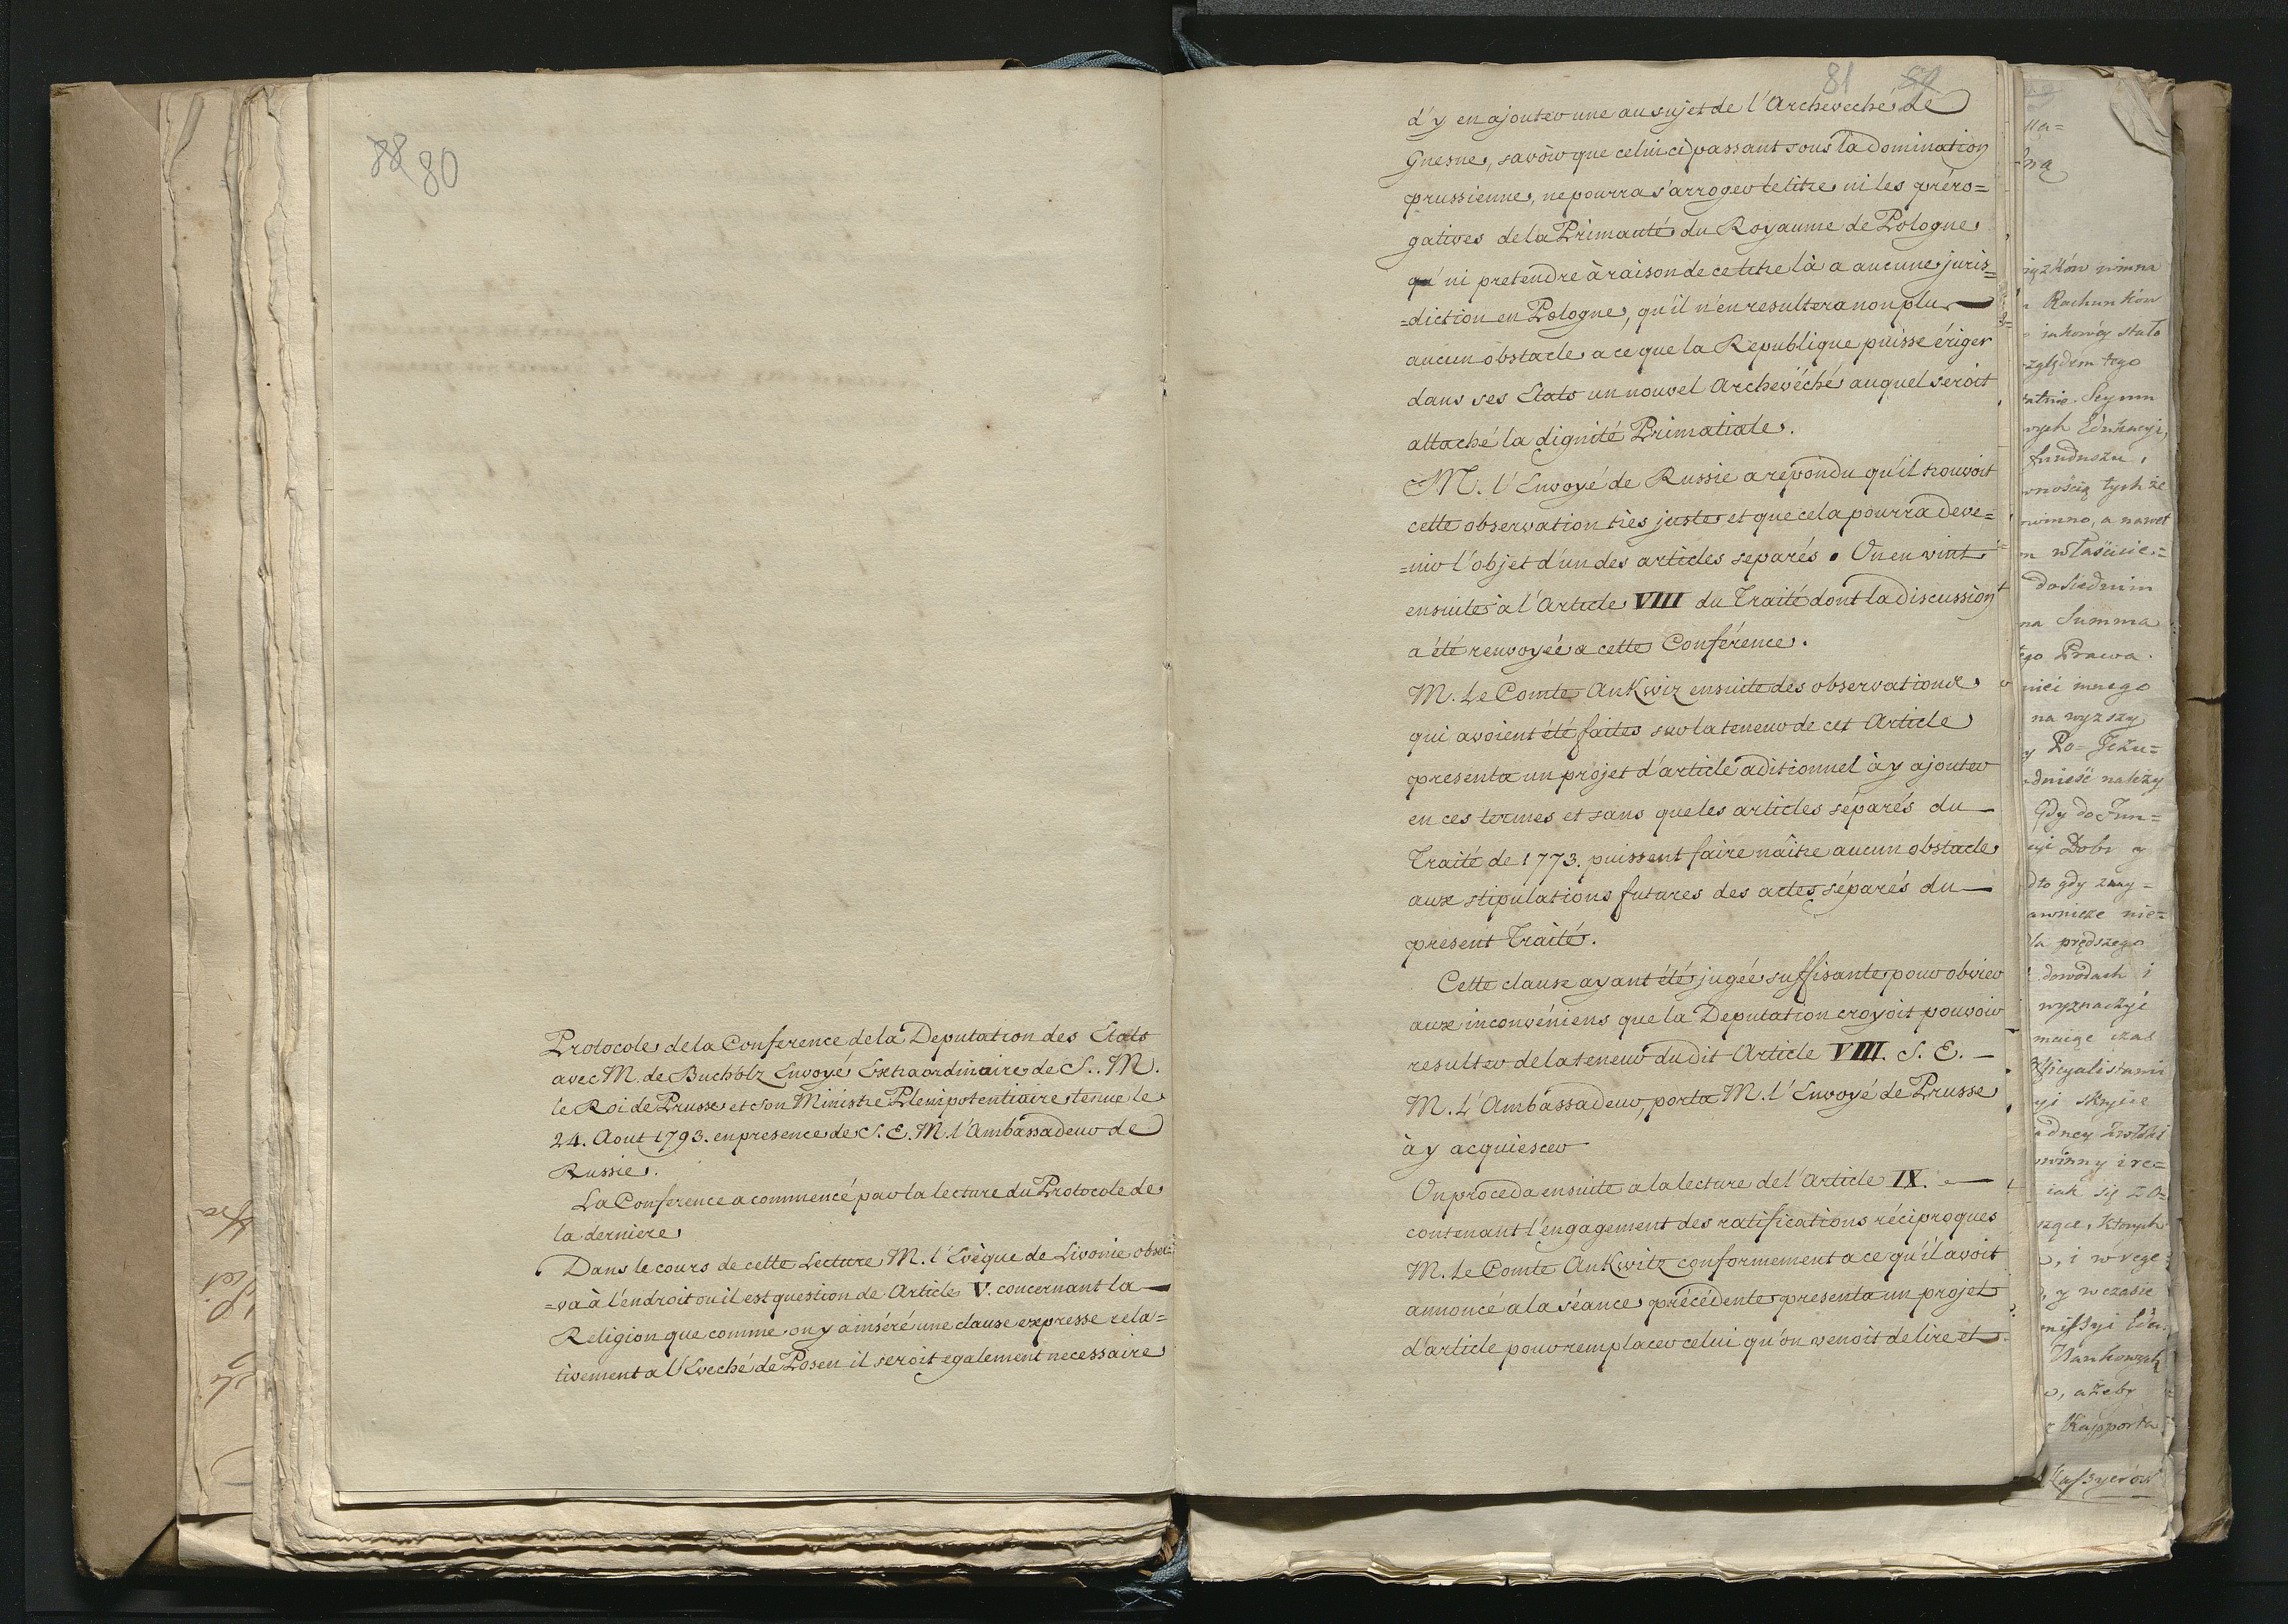 88 80
Protocole de la Conference de la Deputation des Etats
avec M. de Bucholz Envoyé Extraordinaire de S. M.
le Roi de Prusse et son Ministre Plenipotentiaire tenue le
24. Aout 1793. en presence de S. E. M. l'Ambassadeur de
Russie.
La Conference a commencé par la lecture du Protocole de
la derniere
Dans le cours de cette Lecture M. l'Evêque de Livonie obser=
=va à l'endroit ou il est question de Article V. concernant la —
Religion que comme on y a inséré une clause expresse rela=
tivement a l'Eveché de Posen il seroit egalement necessaire
81
d'y en ajouter une au sujet de l'Archeveché de
Gnesne, savoir que celui ci passant sous la domination
prussienne, ne pourra s'arroger le titre ni les préro=
gatives de la Primauté du Royaume de Pologne
qu' ni pretendre à raison de ce titre là a aucune juris=
=diction en Pologne, qu'il n'en resultera non plu —
aucun obstacle a ce que la Republique puisse ériger
dans ses Etats un nouvel Archevêché auquel seroit
attaché la dignité Primatiale.
M. l'Envoyé de Russie a repondu qu'il trouvoit
cette observation très juste et que cela pourra deve=
=nir l'objet d'un des articles separés. On en vint
ensuite a l'Article VIII du Traité dont la discussion
a été renvoyée a cette Conférence.
M. Le Comte Ankwiz ensuite des observations
qui avoient été faites sur la teneur de cet Article
presenta un projet d'article aditionnel à y ajouter
en ces termes et sans que les articles séparés du —
Traité de 1773. puissent faire naître aucun obstacle
aux stipulations futures des actes séparés du —
present Traité.
Cette clause ayant été jugée suffisante pour obvier
aux inconvéniens que la Deputation croyoit pouvoir
resulter de la teneur du dit Article VIII. S. E. —
M. L'Ambassadeur, porta M. l'Envoyé de Prusse
à y acquiescer
On proceda ensuite a la lecture de l'Article IX. —
contenant l'engagement des ratifications réciproques
M. Le Comte Ankwitz conformement a ce qu'il avoit
annoncé a la séance précédente presenta un projet
d'article pour remplacer celui qu'on venoit de lire et
Rachunków
stało
tego
Seymu
Funduszu,
tychże
a nawet
Summa
Prawa.
innego
na wyższy
należy
Gdy do Fun=
Dobr y
gdy
prędszego
dowodach i
czas
i w
y w czasie
ażeby
Rapporta